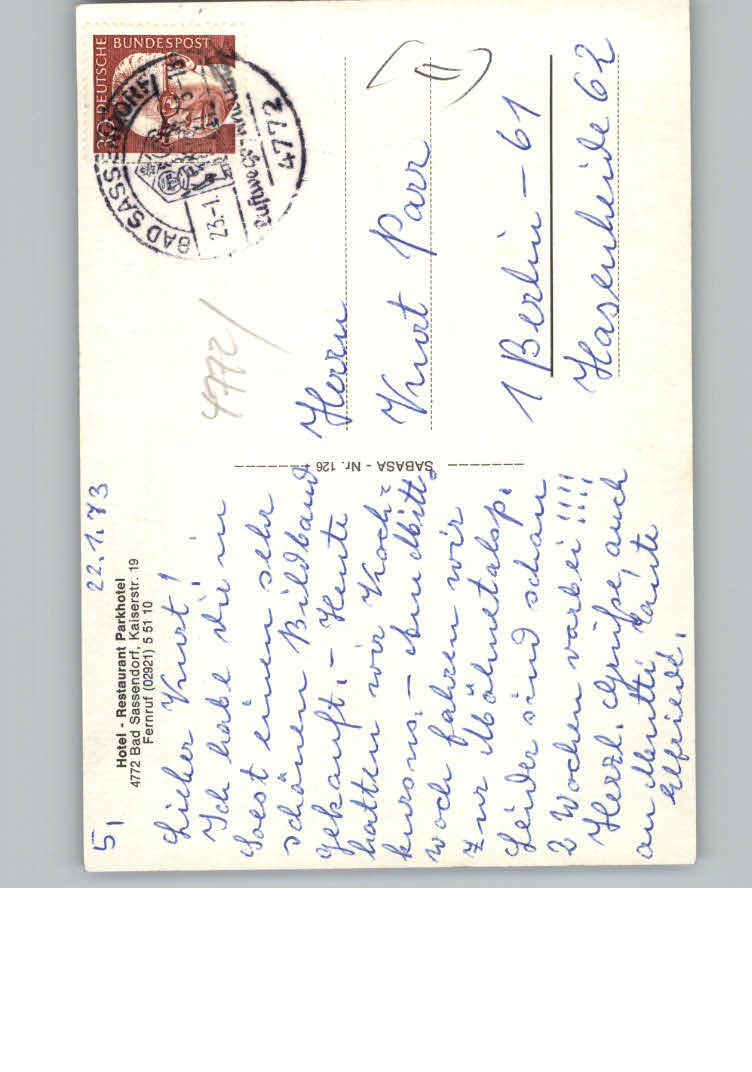 5,
22.1.73
Hotel - Restaurant Parkhotel
4772 Bad Sassendorf, Kaiserstr. 19
Fernruf (02921) 5 51 10
Lieber Kurt!
Ich habe Dir in
Soest einen sehr
schönen Bildband
gekauft. - Heute
hatten wir Koch-
kursus. - Am Mitt-
woch fahren wir
zur Möhnetalsp.
Leider sind schon
2 Wochen vorbei!!!!
Herzl. Grüße, auch
an Mutti Tante
Elfriede.
SABASA - Nr. 126
4772/
DEUTSCHE BUNDESPOST
30
BAD SASSENDORF
23.-1.
4772
Herrn
Kurt Parr
1 Berlin - 61
Hasenheide 62